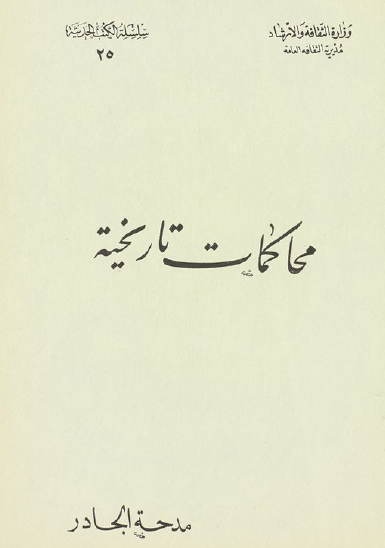 وزارة الثقافة والإرشاد
مديرية الثقافة العامة
سلسلة الكتب الحديثة
٢٥
محاكمات تاريخية
مدحة الجادر